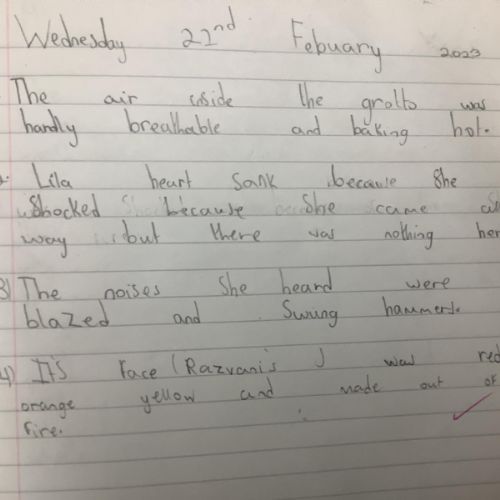 Wednesday 22nd Febuary 2023
The air inside the grotto was
hardly breathable and baking hot.
2. Lila heart sank because She
Shocked because She came all
way but there was nothing her
3) The noises She heard were
blazed and Swung hammers.
4) It's Face (Razvani's ) was red
orange yellow and made out of
fire.